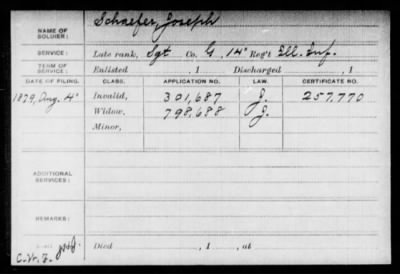 NAME OF SOLDIER: Schaefer, Joseph
SERVICE: Late rank, Sgt Co. G, 14" Reg't Ill. Inf.
TERM OF SERVICE: Enlisted , 1 Discharged , 1
DATE OF FILING. CLASS. APPLICATION NO. LAW. CERTIFICATE NO.
1879, Aug. 4" Invalid, 301,687 J. 257,770
Widow, 798,688 J.
Minor,
ADDITIONAL SERVICES:
REMARKS:
Died , 1 , at